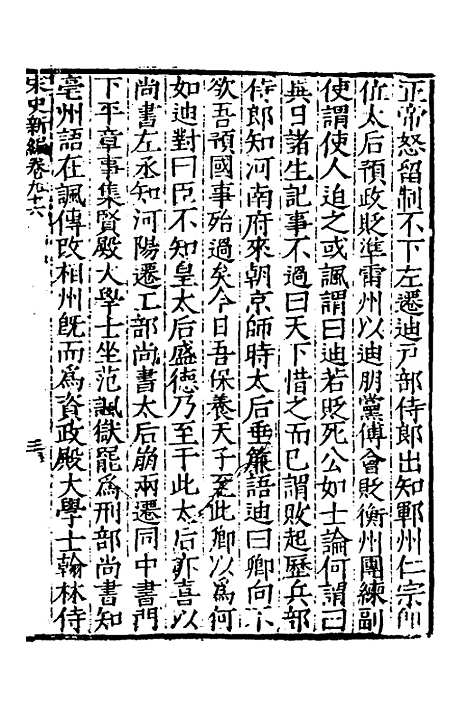 正帝怒留制不下左遷迪戸部侍郎出知鄆州仁宗即
位太后預政貶準雷州以迪朋黨傅會貶衡州團練副
使謂使人迫之或諷謂曰迪若貶死公如士論何謂曰
異日諸生記事不過曰天下惜之而已謂敗起歷兵部
侍郎知河南府來朝京師時太后垂簾語迪曰卿向不
欲吾預國事殆過矣今日吾保養天子至此卿以爲何
如迪對曰臣不知皇太后盛德乃至于此太后亦喜以
尚書左丞知河陽遷工部尚書太后崩兩遷同中書門
下平章事集賢殿大學士坐范諷獄罷爲刑部尚書知
亳州語在諷傳改相州旣而爲資政殿大學士翰林侍
宋史新編卷九十六
三